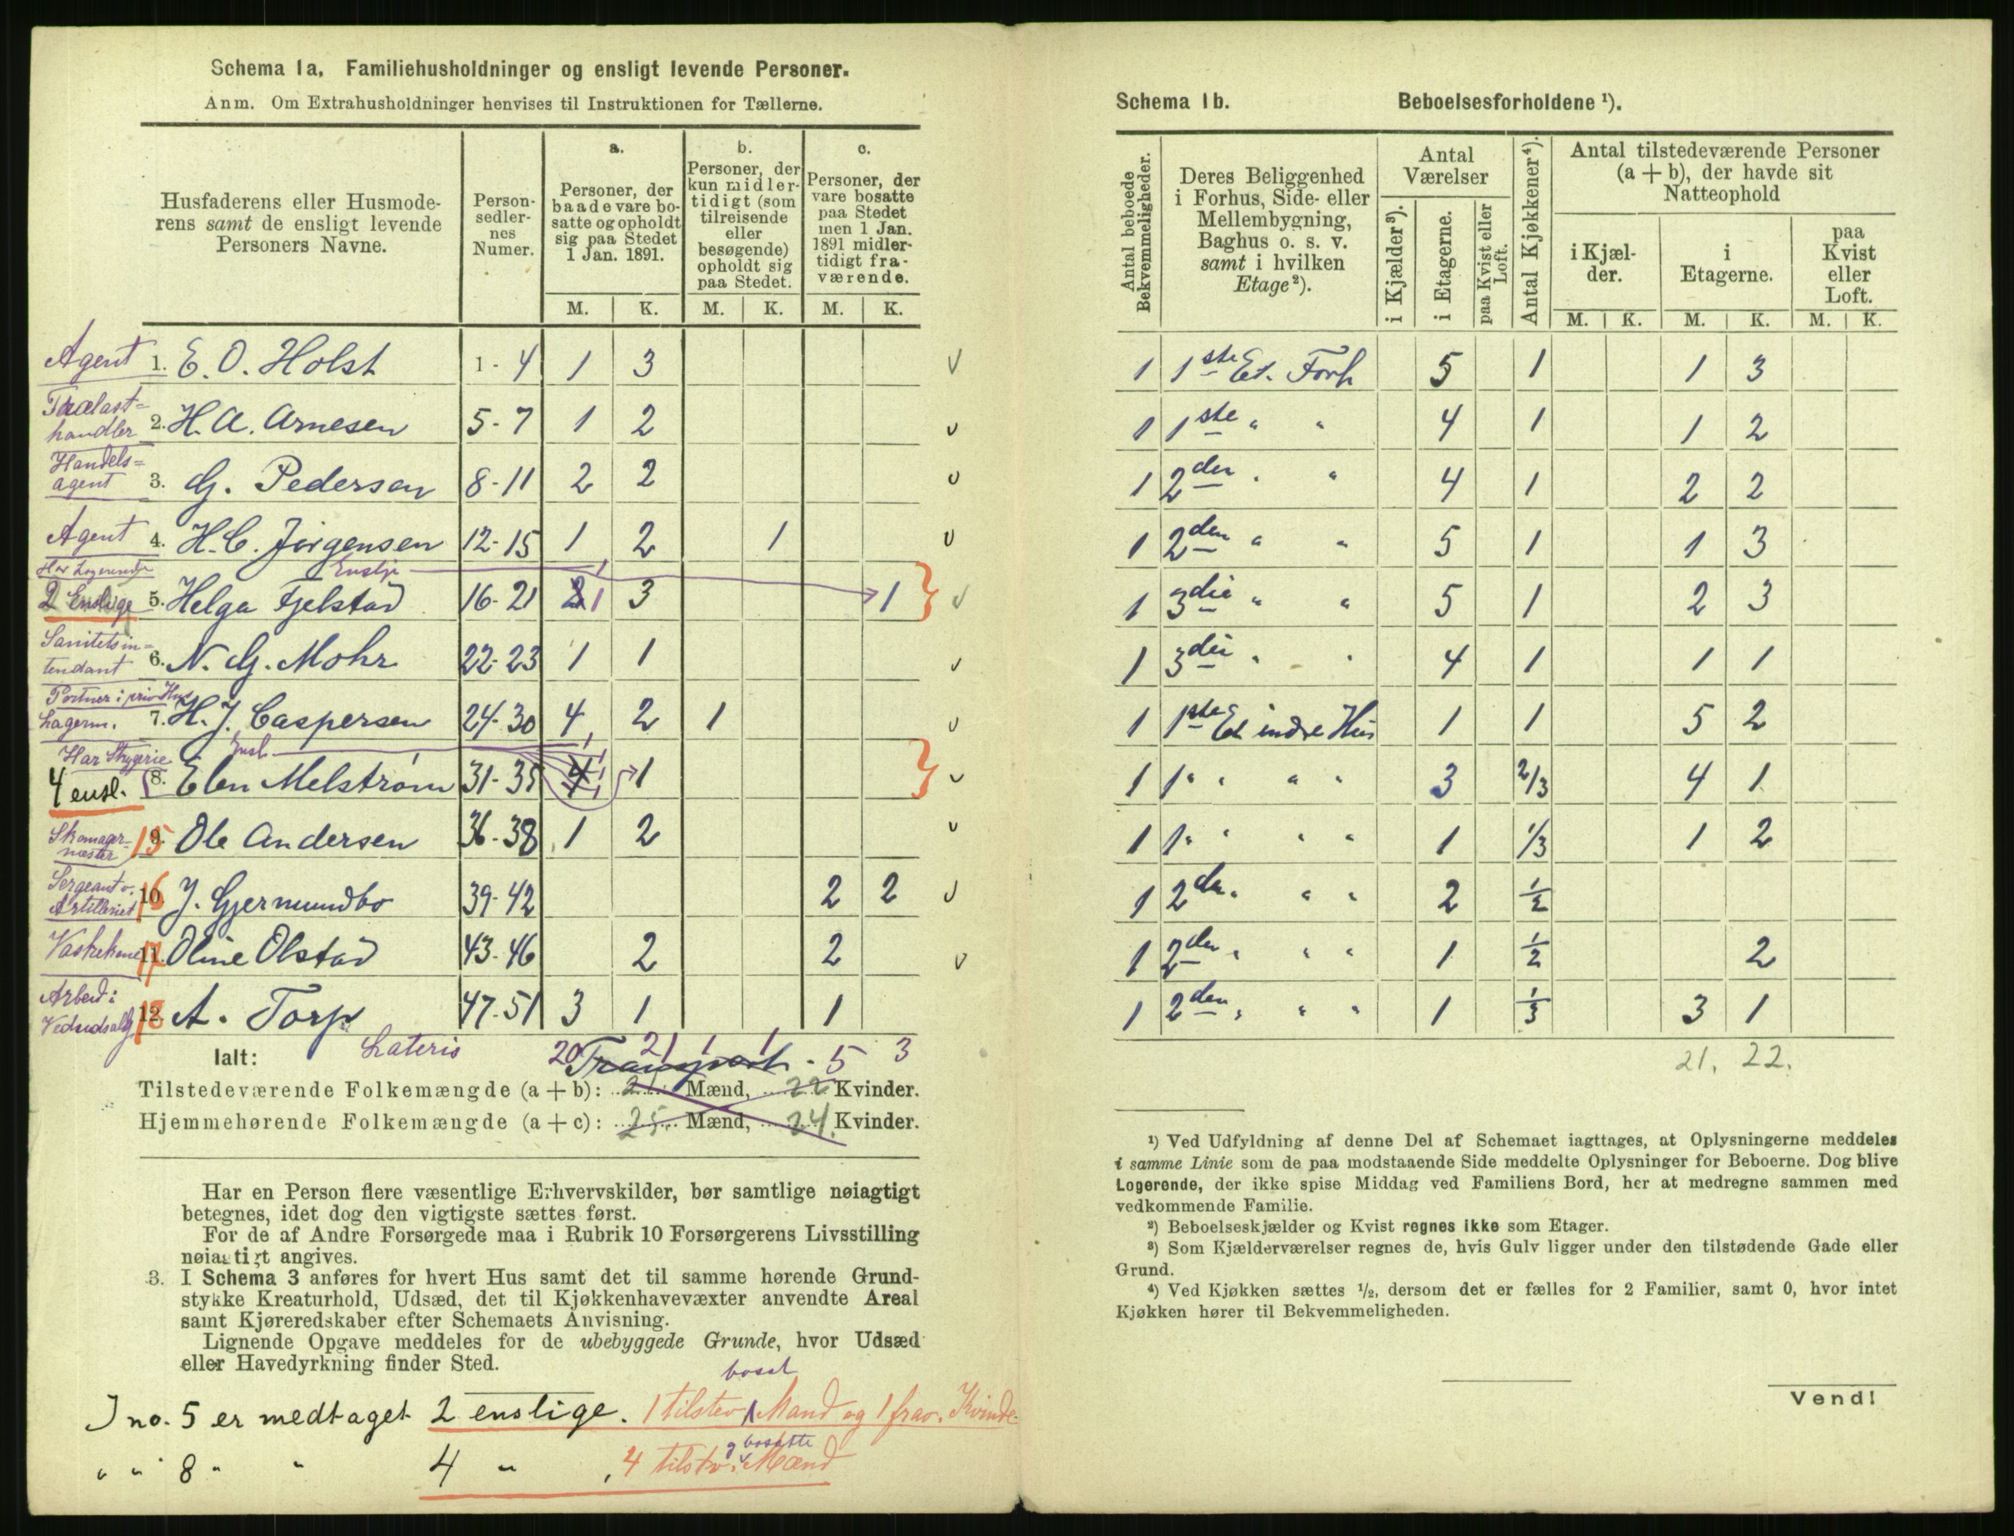 Schema 1a. Familiehusholdninger og ensligt levende Personer.
Anm. Om Extrahusholdninger henvises til Instruktionen for Tællerne.
Husfaderens eller Husmoderens samt de ensligt levende Personers Navne.
Person-sedler-nes Numer.
a. Personer, der baade vare bosatte og opholdt sig paa Stedet 1 Jan. 1891.
b. Personer, der kun midlertidigt (som tilreisende eller besøgende) opholdt sig paa Stedet.
c. Personer, der vare bosatte paa Stedet men 1 Jan. 1891 midlertidigt fraværende.
M. K. M. K. M. K.
Agent 1. E. O. Holst 1-4 1 3
Trælast=handler 2. H. A. Arnesen 5-7 1 2
Handels=agent 3. G. Pedersen 8-11 2 2
Agent 4. H. C. Jørgensen 12-15 1 2 1
Har Logerende Enslje 1
2 Enslige 5. Helga Fjelstad 16-21 2 1 3 1
Sanitetsin=tendant 6. N. G. Mohr 22-23 1 1
Portner i priv Hus Lagerm. 7. H. J. Caspersen 24-30 4 2 1
Har Strygerie Ensl.
4 ensl. 8. Elen Melstrøm 31-35 4 1
Skomager-mester 15 9. Ole Andersen 36-38 1 2
Sergeant v. Artilleriet 16 10. J. Gjermundbo 39-42 2 2
Vaskekone 17 11. Oline Olstad 43-46 2 2
Arbeid i Vedudsalg 18 12. A. Torp 47-51 3 1 1
Ialt: Lateris 20 21 1 1 5 3
Transport
Tilstedeværende Folkemængde (a + b): 21 Mænd, 22 Kvinder.
Hjemmehørende Folkemængde (a + c): 25 Mænd, 24 Kvinder.
Har en Person flere væsentlige Erhvervskilder, bør samtlige nøiagtigt
betegnes, idet dog den vigtigste sættes først.
For de af Andre Forsørgede maa i Rubrik 10 Forsørgerens Livsstilling
nøiagtigt angives.
3. I Schema 3 anføres for hvert Hus samt det til samme hørende Grund-
stykke Kreaturhold, Udsæd, det til Kjøkkenhavevæxter anvendte Areal
samt Kjøreredskaber efter Schemaets Anvisning.
Lignende Opgave meddeles for de ubebyggede Grunde, hvor Udsæd
eller Havedyrkning finder Sted.
bosat
I no. 5 er medtaget 2 enslige. 1 tilstev Mand og 1 frav. Kvinde
g bosatte
" " 8 " " 4 " , 4 tilstv. Mænd
Schema 1b. Beboelsesforholdene ¹).
Antal beboede Bekvemmeligheder.
Deres Beliggenhed i Forhus, Side- eller Mellembygning, Baghus o. s. v. samt i hvilken Etage ²).
Antal Værelser
i Kjælder ³). i Etagerne. paa Kvist eller Loft.
Antal Kjøkkener ⁴).
Antal tilstedeværende Personer (a + b), der havde sit Natteophold
i Kjælder. i Etagerne. paa Kvist eller Loft.
M. K. M. K. M. K.
1 1ste Et. Forh 5 1 1 3
1 1ste " " 4 1 1 2
1 2den " " 4 1 2 2
1 2den " " 5 1 1 3
1 3die " " 5 1 2 3
1 3die " " 4 1 1 1
1 1ste Et indre Hus 1 1 5 2
1 1" " " " 3 2/3 4 1
1 1" " " " 1 1/3 1 2
1 2den " " " 2 1/2
1 2den " " " 1 1/2 2
1 2den " " " 1 1/3 3 1
21. 22.
¹) Ved Udfyldning af denne Del af Schemaet iagttages, at Oplysningerne meddeles
i samme Linie som de paa modstaaende Side meddelte Oplysninger for Beboerne. Dog blive
Logerende, der ikke spise Middag ved Familiens Bord, her at medregne sammen med
vedkommende Familie.
²) Beboelseskjælder og Kvist regnes ikke som Etager.
³) Som Kjælderværelser regnes de, hvis Gulv ligger under den tilstødende Gade eller
Grund.
⁴) Ved Kjøkken sættes ½, dersom det er fælles for 2 Familier, samt 0, hvor intet
Kjøkken hører til Bekvemmeligheden.
Vend!